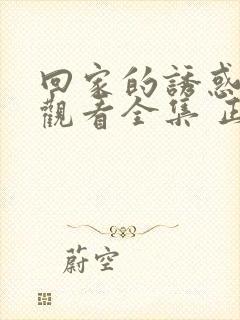 回家的誘惑
觀看全集
蔚空